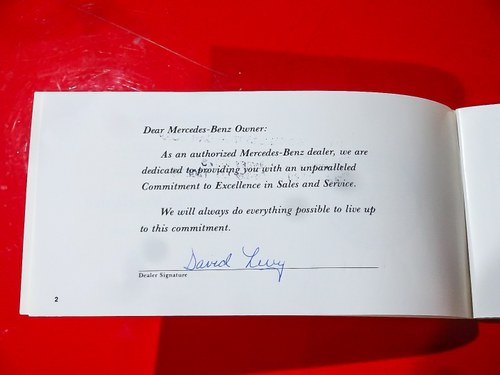 Dear Mercedes-Benz Owner:
As an authorized Mercedes-Benz dealer, we are
dedicated to providing you with an unparalleled
Commitment to Excellence in Sales and Service.
We will always do everything possible to live up
to this commitment.
David
Dealer Signature
2